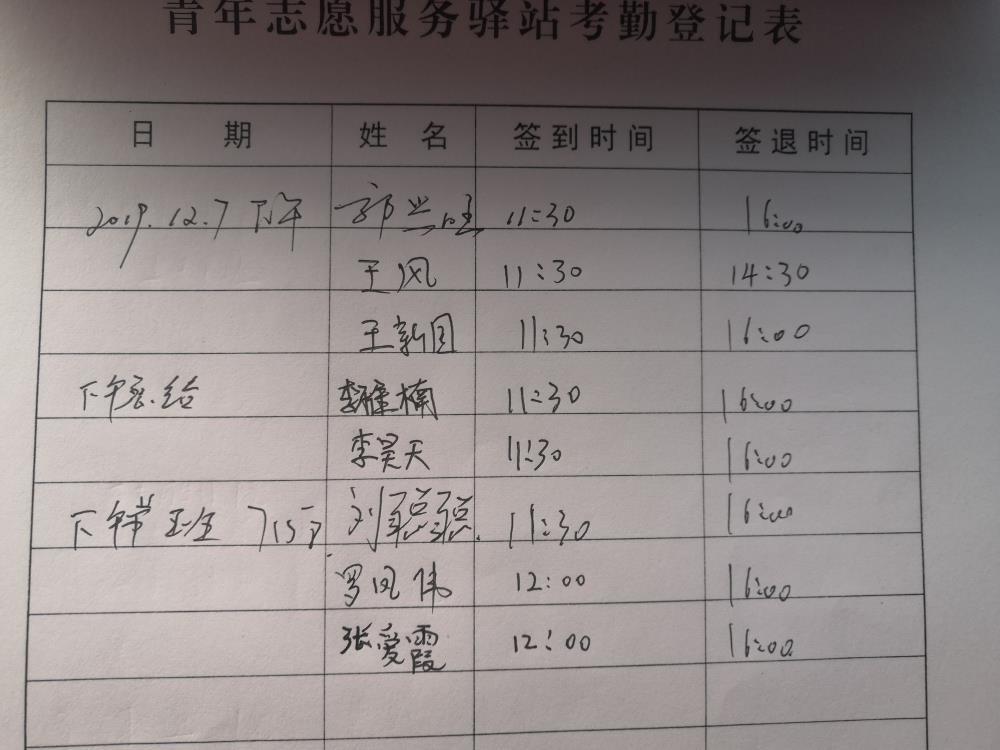 青年志愿服务驿站考勤登记表
日 期 姓 名 签到时间 签退时间
2019.12.7 下午 郭兴旺 11:30 16:00
王凤 11:30 14:30
王新国 11:30 16:00
下午 李建楠 11:30 16:00
李昊天 11:30 16:00
下午 班 刘聪聪 11:30 16:00
罗凤伟 12:00 16:00
张爱霞 12:00 16:00